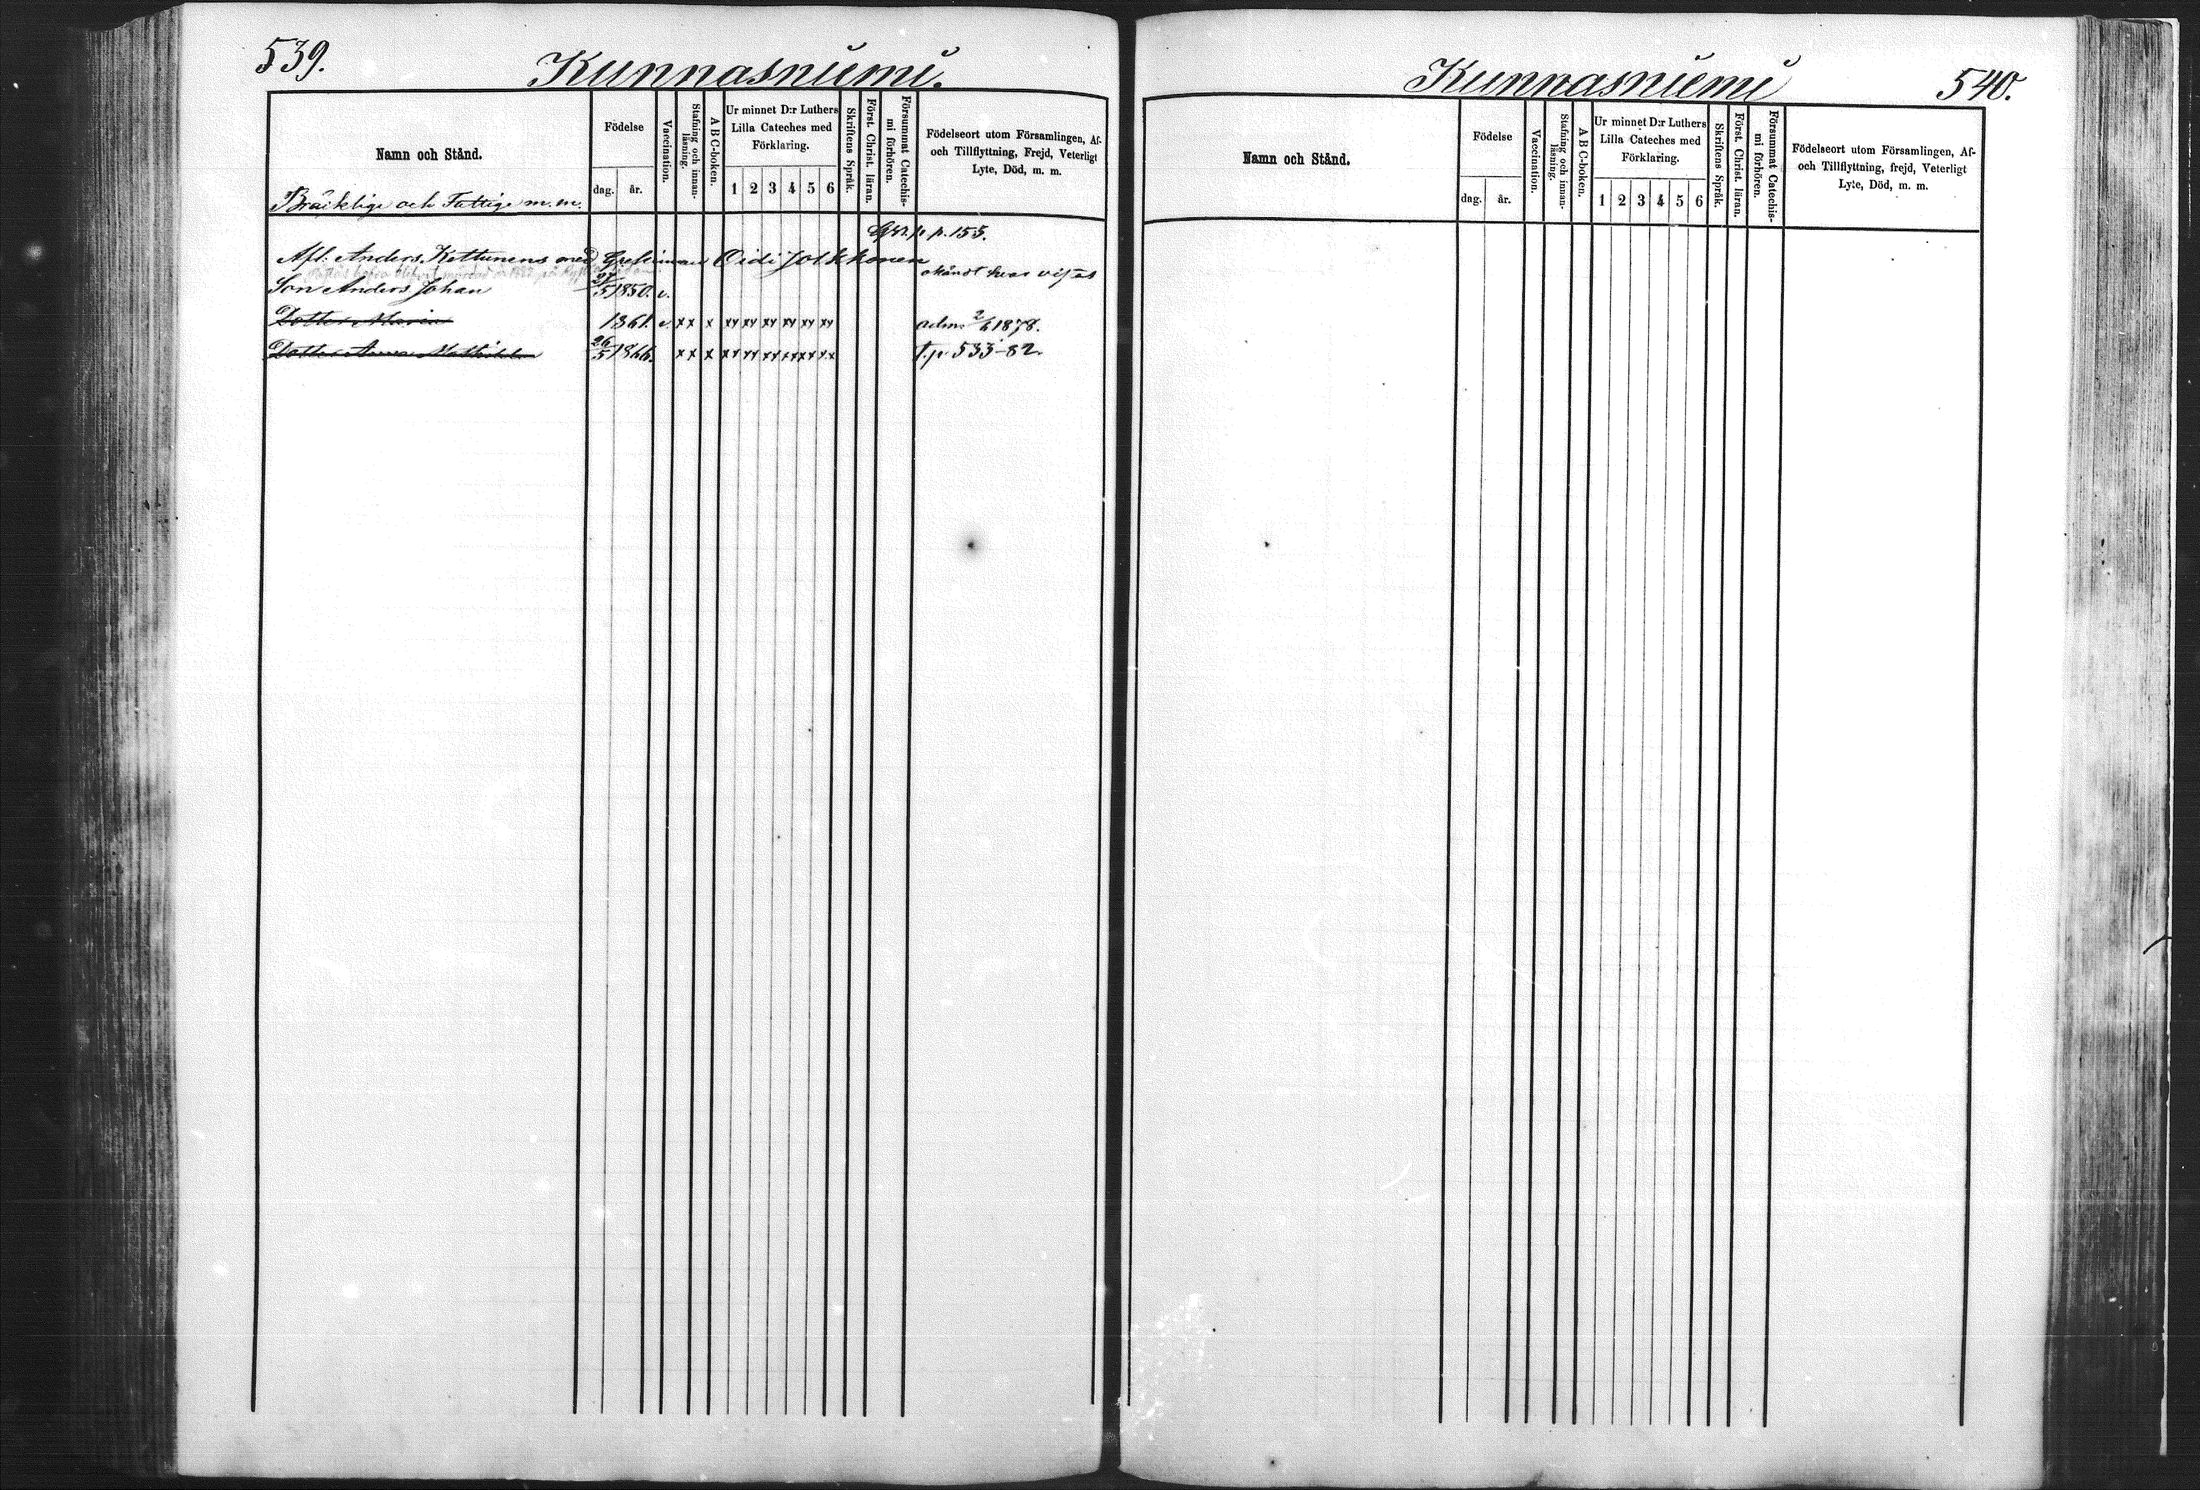 539.
Kunnasniemi.
Namn och Stånd.
Födelse
dag. år.
Vaccination.
Stafning och innanläsning.
A B C-boken.
Ur minnet D:r Luthers
Lilla Cateches med
Förklaring.
1 2 3 4 5 6
Skriftens Språk.
Först. Christ. läran.
Försummat Catechismi förhören.
Födelseort utom Församlingen, Af-
och Tillflyttning, Frejd, Veterligt
Lyte, Död, m. m.
Bräcklige och Fattige m. m.
p. 155.
Afl. Anders Kettunens med Oidi Jolkkonen
Son Anders Johan 27/5 1850. v. okändt hvar vistas
Dotter Maria 1861. v. xx x xy xy xy xy xy xy adm. 2/6 1878.
Dotter Anna Mathilda 26/5 1866. xx x t.p. 533-82.
Kunnasniemi
540.
Namn och Stånd.
Födelse
dag. år.
Vaccination.
Stafning och innanläsning.
A B C-boken.
Ur minnet D:r Luthers
Lilla Cateches med
Förklaring.
1 2 3 4 5 6
Skriftens Språk.
Först. Christ. läran.
Försummat Catechismi förhören.
Födelseort utom Församlingen, Af-
och Tillflyttning, frejd, Veterligt
Lyte, Död, m. m.